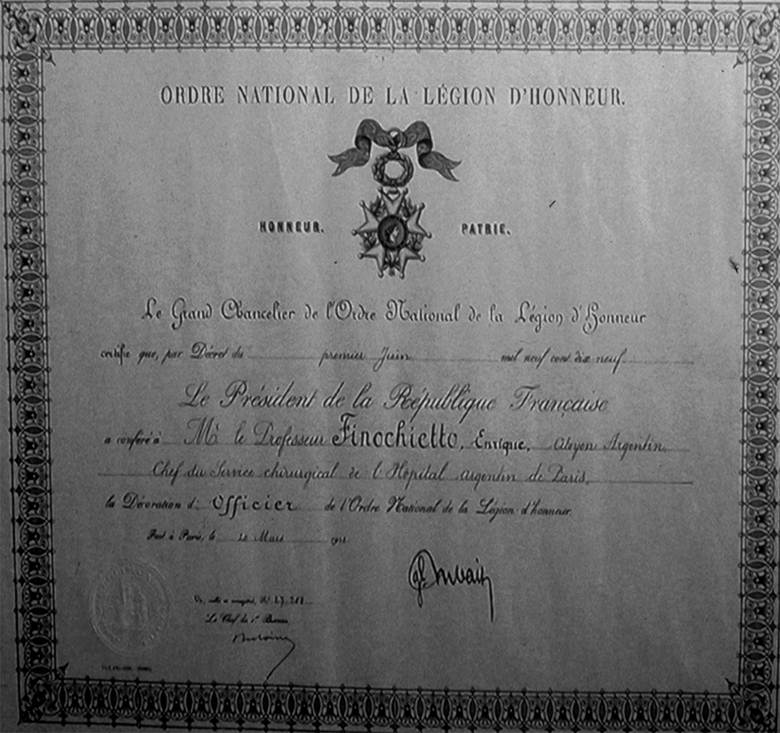 ORDRE NATIONAL DE LA LÉGION D'HONNEUR.
HONNEUR. PATRIE.
Le Grand Chancelier de l'Ordre National de la Légion d'Honneur
certifie que, par Décret du premier Juin mil neuf cent dix neuf
Le Président de la République Française
a conféré à Mr le Professeur Finochietto, Enrique, Citoyen Argentin,
Chef du Service chirurgical de l'Hôpital Argentin de Paris,
la Décoration d' Officier de l'Ordre National de la Légion d'honneur.
Fait à Paris, le Mars
Vu, et
Le Chef du 1er Bureau